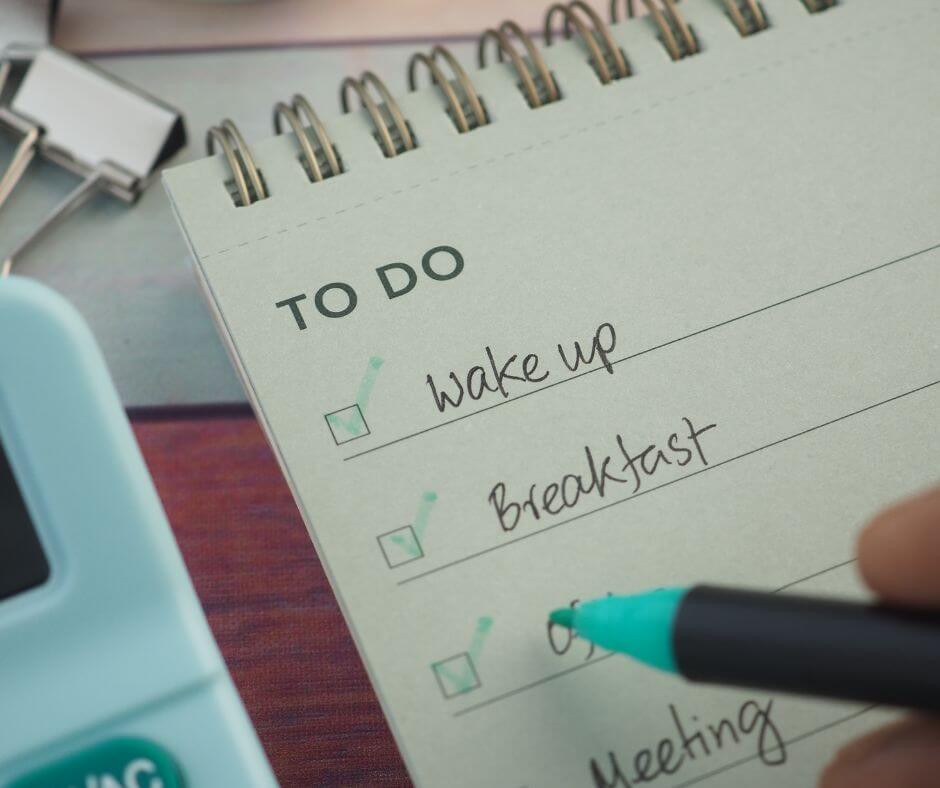 TO DO
Wake up
Breakfast
Meeting
AC